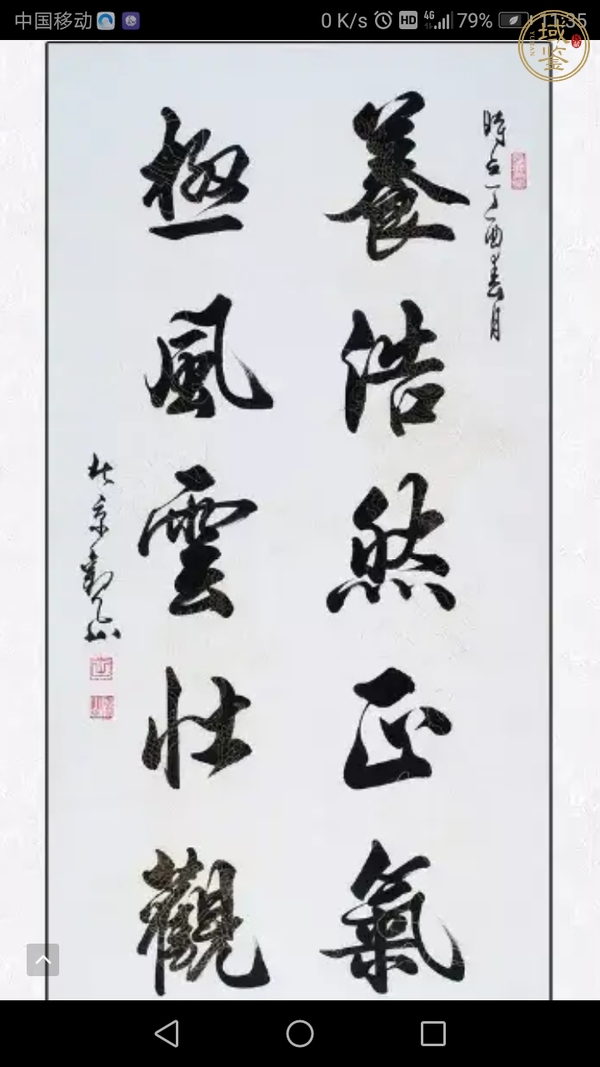 中国移动 0 K/s HD 4G 79% 11:35
域鉴
YUJIAN
時在丁酉春月
養浩然正氣
極風雲壯觀
北京